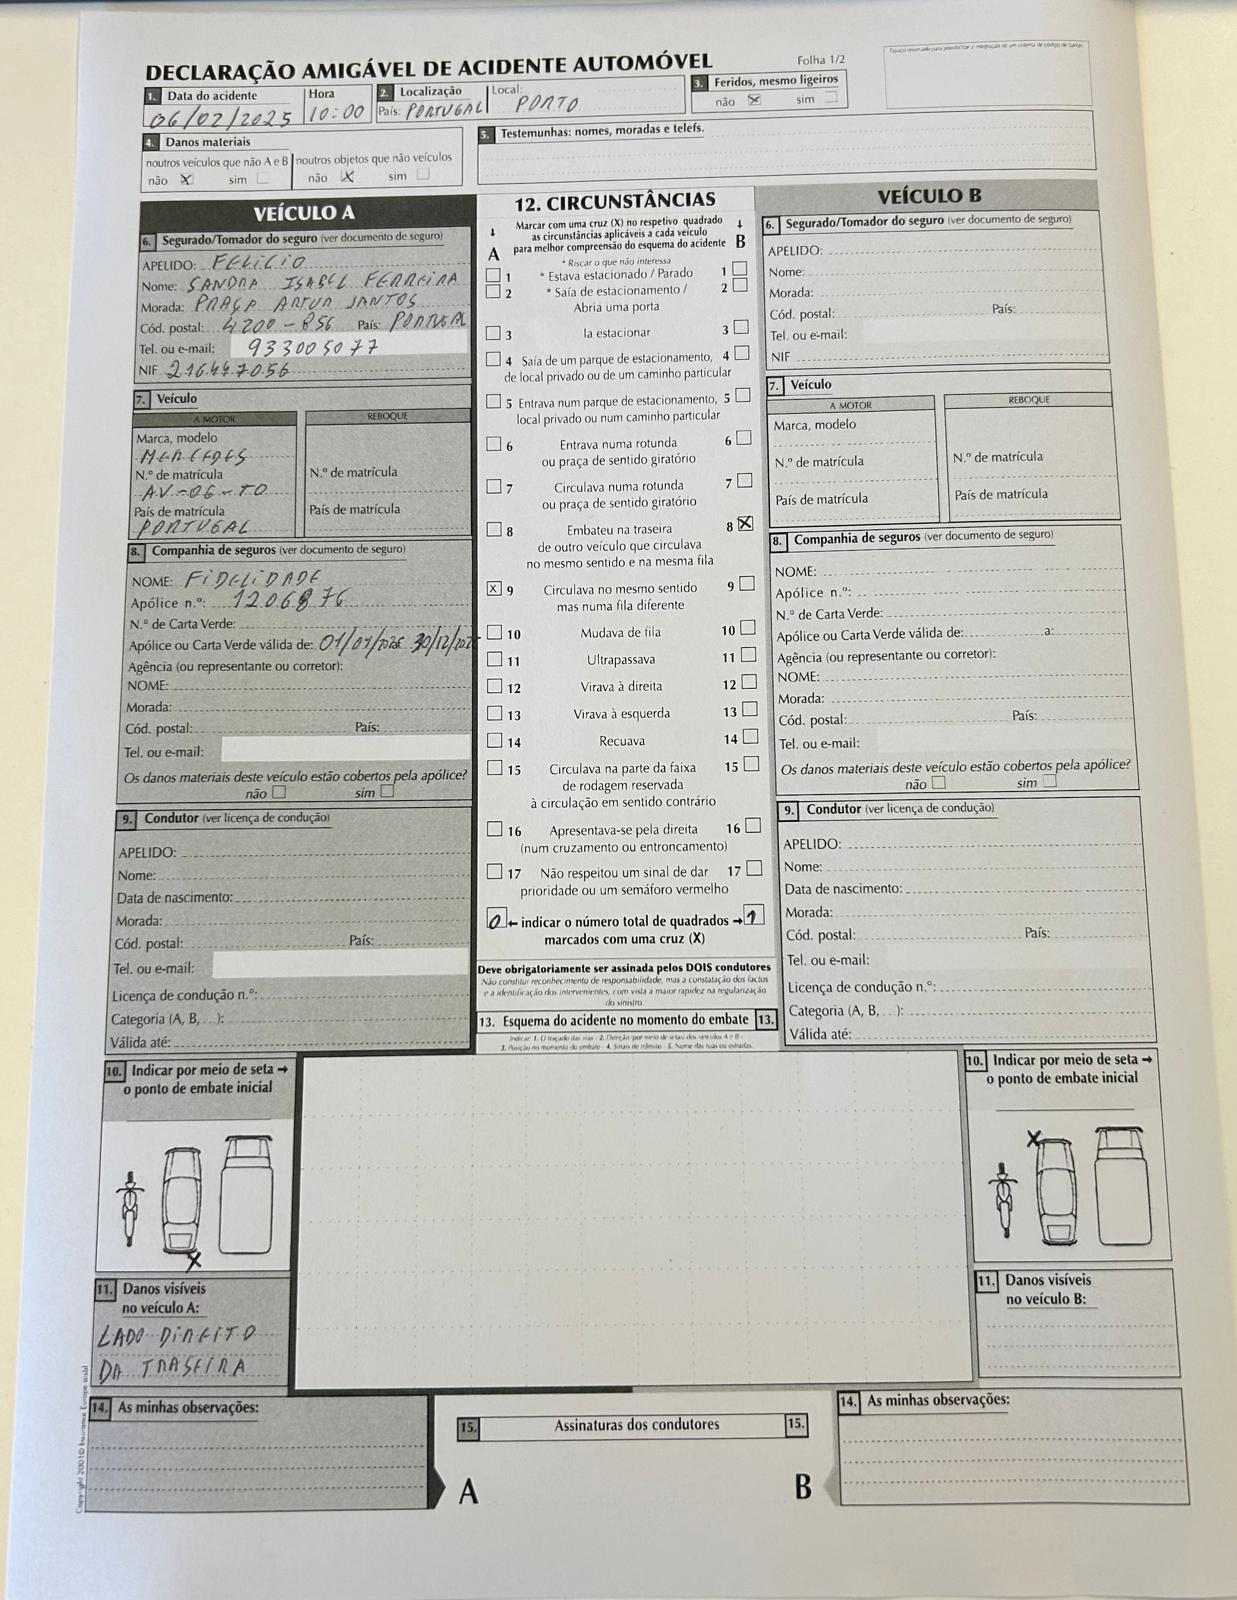 DECLARAÇÃO AMIGÁVEL DE ACIDENTE AUTOMÓVEL
Folha 1/2
1. Data do acidente
06/02/2025
Hora
10:00
2. Localização
País: PORTUGAL
Local:
PORTO
3. Feridos, mesmo ligeiros
não X sim
4. Danos materiais
noutros veículos que não A e B
não X sim
noutros objetos que não veículos
não X sim
5. Testemunhas: nomes, moradas e telefs.
VEÍCULO A
6. Segurado/Tomador do seguro (ver documento de seguro)
APELIDO: FELICIO
Nome: SANDRA ISABEL FERREIRA
Morada: PRAÇA ARTUR SANTOS
Cód. postal: 4200-856 País: PORTUGAL
Tel. ou e-mail: 933005077
NIF 216447056
7. Veículo
A MOTOR
Marca, modelo
MERCEDES
N.º de matrícula
AV-06-TO
País de matrícula
PORTUGAL
REBOQUE
N.º de matrícula
País de matrícula
8. Companhia de seguros (ver documento de seguro)
NOME: FIDELIDADE
Apólice n.º: 1206876
N.º de Carta Verde:
Apólice ou Carta Verde válida de: 01/01/2025 30/12/202
Agência (ou representante ou corretor):
NOME:
Morada:
Cód. postal: País:
Tel. ou e-mail:
Os danos materiais deste veículo estão cobertos pela apólice?
não sim
9. Condutor (ver licença de condução)
APELIDO:
Nome:
Data de nascimento:
Morada:
Cód. postal: País:
Tel. ou e-mail:
Licença de condução n.º:
Categoria (A, B, ...):
Válida até:
10. Indicar por meio de seta →
o ponto de embate inicial
X
11. Danos visíveis
no veículo A:
LADO DIREITO
DA TRASEIRA
14. As minhas observações:
12. CIRCUNSTÂNCIAS
↓ A
Marcar com uma cruz (X) no respetivo quadrado
as circunstâncias aplicáveis a cada veículo
para melhor compreensão do esquema do acidente
↓ B
* Riscar o que não interessa
1 * Estava estacionado / Parado 1
2 * Saída de estacionamento / 2
Abria uma porta
3 Ia estacionar 3
4 Saía de um parque de estacionamento, 4
de local privado ou de um caminho particular
5 Entrava num parque de estacionamento, 5
local privado ou num caminho particular
6 Entrava numa rotunda 6
ou praça de sentido giratório
7 Circulava numa rotunda 7
ou praça de sentido giratório
8 Embateu na traseira 8 X
de outro veículo que circulava
no mesmo sentido e na mesma fila
X 9 Circulava no mesmo sentido 9
mas numa fila diferente
10 Mudava de fila 10
11 Ultrapassava 11
12 Virava à direita 12
13 Virava à esquerda 13
14 Recuava 14
15 Circulava na parte da faixa 15
de rodagem reservada
à circulação em sentido contrário
16 Apresentava-se pela direita 16
(num cruzamento ou entroncamento)
17 Não respeitou um sinal de dar 17
prioridade ou um semáforo vermelho
0 ← indicar o número total de quadrados → 1
marcados com uma cruz (X)
Deve obrigatoriamente ser assinada pelos DOIS condutores
Não constitui reconhecimento de responsabilidade, mas a constatação dos factos
e a identificação dos intervenientes, com vista a maior rapidez na regularização
do sinistro.
13. Esquema do acidente no momento do embate 13.
15. Assinaturas dos condutores 15.
A B
VEÍCULO B
6. Segurado/Tomador do seguro (ver documento de seguro)
APELIDO:
Nome:
Morada:
Cód. postal: País:
Tel. ou e-mail:
NIF
7. Veículo
A MOTOR
Marca, modelo
N.º de matrícula
País de matrícula
REBOQUE
N.º de matrícula
País de matrícula
8. Companhia de seguros (ver documento de seguro)
NOME:
Apólice n.º:
N.º de Carta Verde:
Apólice ou Carta Verde válida de: a:
Agência (ou representante ou corretor):
NOME:
Morada:
Cód. postal: País:
Tel. ou e-mail:
Os danos materiais deste veículo estão cobertos pela apólice?
não sim
9. Condutor (ver licença de condução)
APELIDO:
Nome:
Data de nascimento:
Morada:
Cód. postal: País:
Tel. ou e-mail:
Licença de condução n.º:
Categoria (A, B, ...):
Válida até:
10. Indicar por meio de seta →
o ponto de embate inicial
X
11. Danos visíveis
no veículo B:
14. As minhas observações: